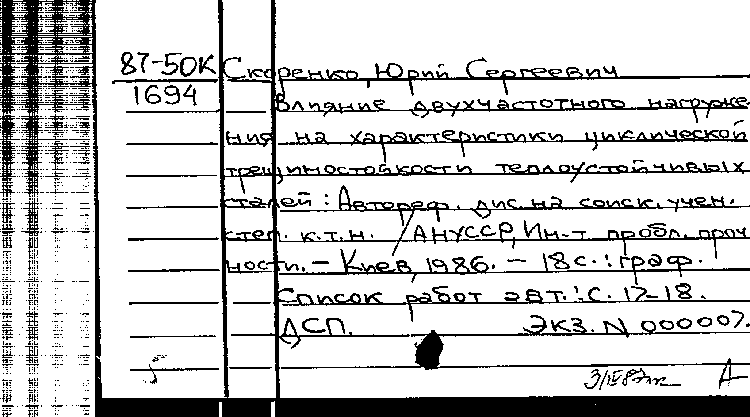 87-50К Скоренко, Юрий Сергеевич
1694 Влияние двухчастотного нагруже
ния на характеристики циклической
трещиностойкости теплоустойчивых
сталей : Автореф. дис. на соиск. учен.
степ. к.т.н. / АНУССР, Ин-т пробл. проч
ности. – Киев, 1986. – 18 с. : граф.
Список работ авт.: С. 17-18.
ДСП. Экз. N 000007.
Д